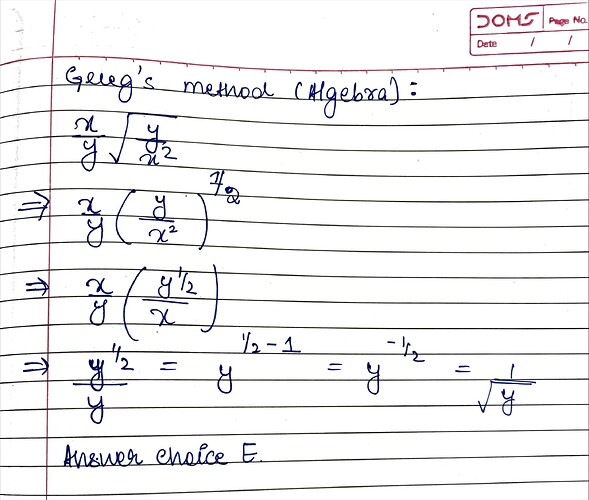 DOMS Page No.
Date / /
Greg's method (Algebra):
x/y √(y/x²)
⇒ x/y (y/x²)^1/2
⇒ x/y (y^1/2/x)
⇒ y^1/2/y = y^1/2-1 = y^-1/2 = 1/√y
Answer choice E.